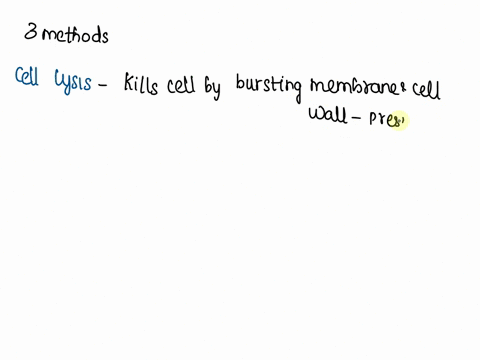 3 methods
Cell Lysis - Kills cell by bursting membrane & cell
Wall - pres